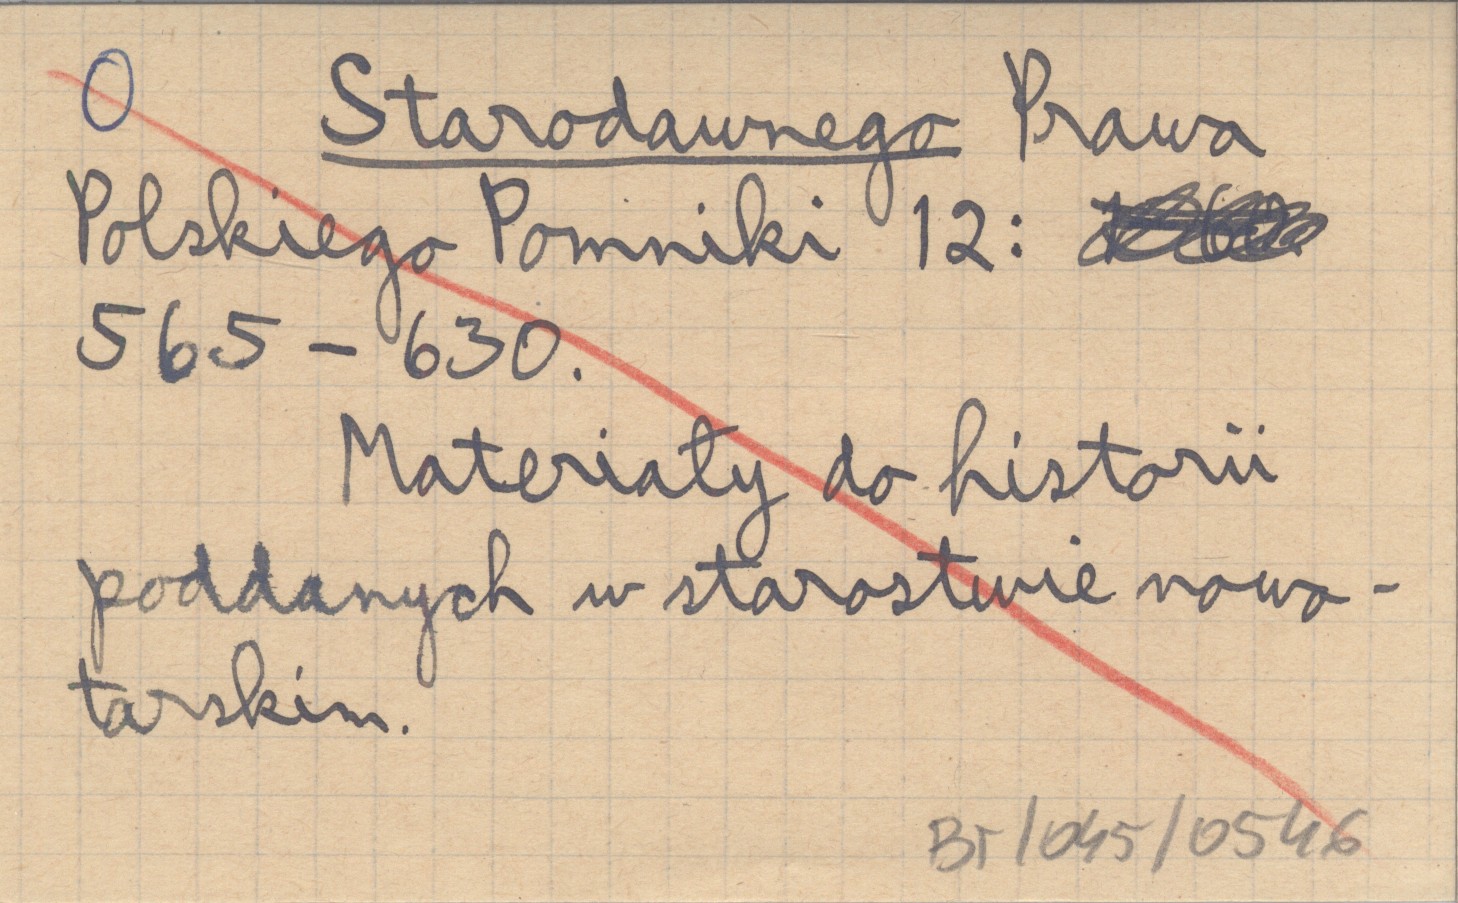 0 Starodawnego Prawa
Polskiego Pomniki 12:
565 – 630.
Materiały do historii
poddanych w starostwie nowo-
tarskim.
Br/045/0546